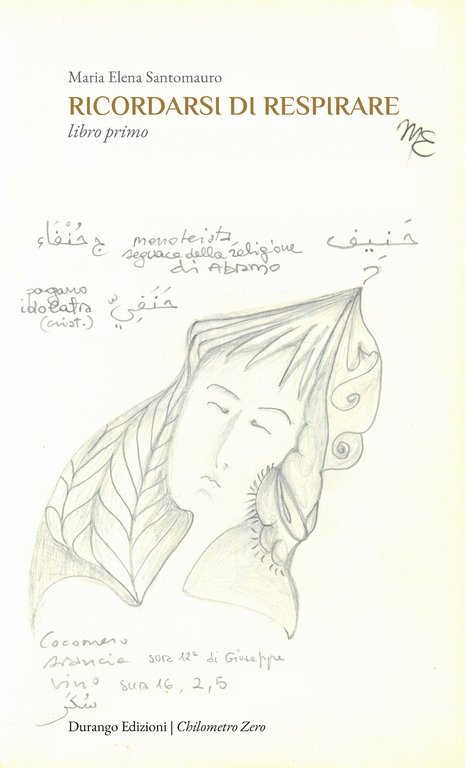 Maria Elena Santomauro
RICORDARSI DI RESPIRARE
libro primo
ME
حَنِيف monoteista ج حُنَفَاء
seguace della religione
di Abramo
pagano
idolatra حَنَفِيّ
(crist.)
Cocomero
Arancia SURA 12ª di Giuseppe
Vino SURA 16, 2, 5
سُكَّر
Durango Edizioni | Chilometro Zero